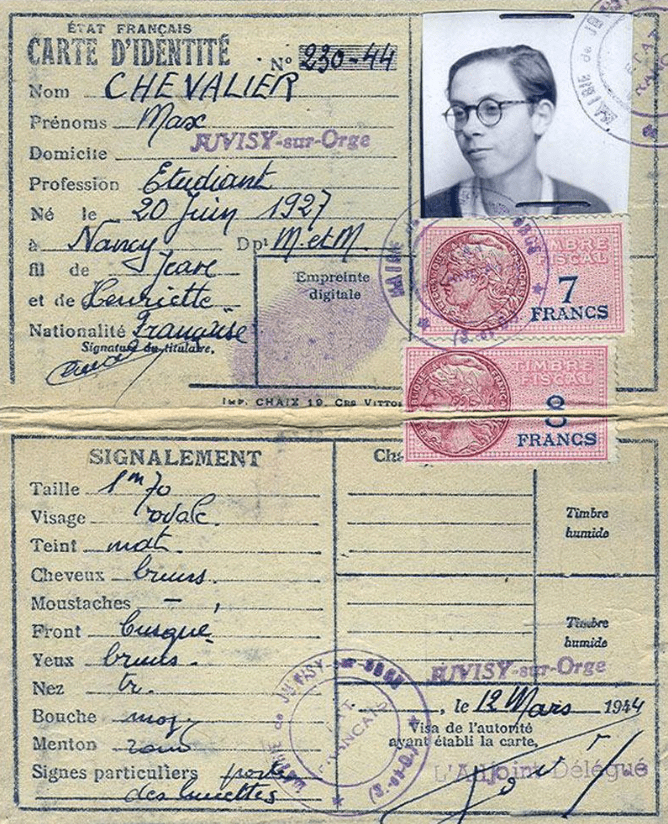 ÉTAT FRANÇAIS
CARTE D'IDENTITÉ
N° 230-44
Nom CHEVALIER
Prénoms Max
Domicile JUVISY-sur-Orge
Profession Etudiant
Né le 20 Juin 1927
à Nancy Dpt M. et M.
fil de Jean
et de Henriette
Nationalité Française
Signature du titulaire,
Empreinte
digitale
MAIRIE de JUVISY
TIMBRE
FISCAL
7
FRANCS
TIMBRE
FISCAL
8
FRANCS
IMP. CHAIX 19, CRS VITTO
SIGNALEMENT
Taille 1m70
Visage ovale.
Teint mat.
Cheveux bruns.
Moustaches —
Front busqué
Yeux bruns.
Nez
Bouche moy
Menton
Signes particuliers porte
des lunettes
Ch
Timbre
humide
Timbre
humide
JUVISY-sur-Orge
, le 12 Mars 1944
Visa de l'autorité
ayant établi la carte,
L'Adjoint Délégué
MAIRIE de JUVISY-sur-ORGE
ETAT
FRANÇAIS